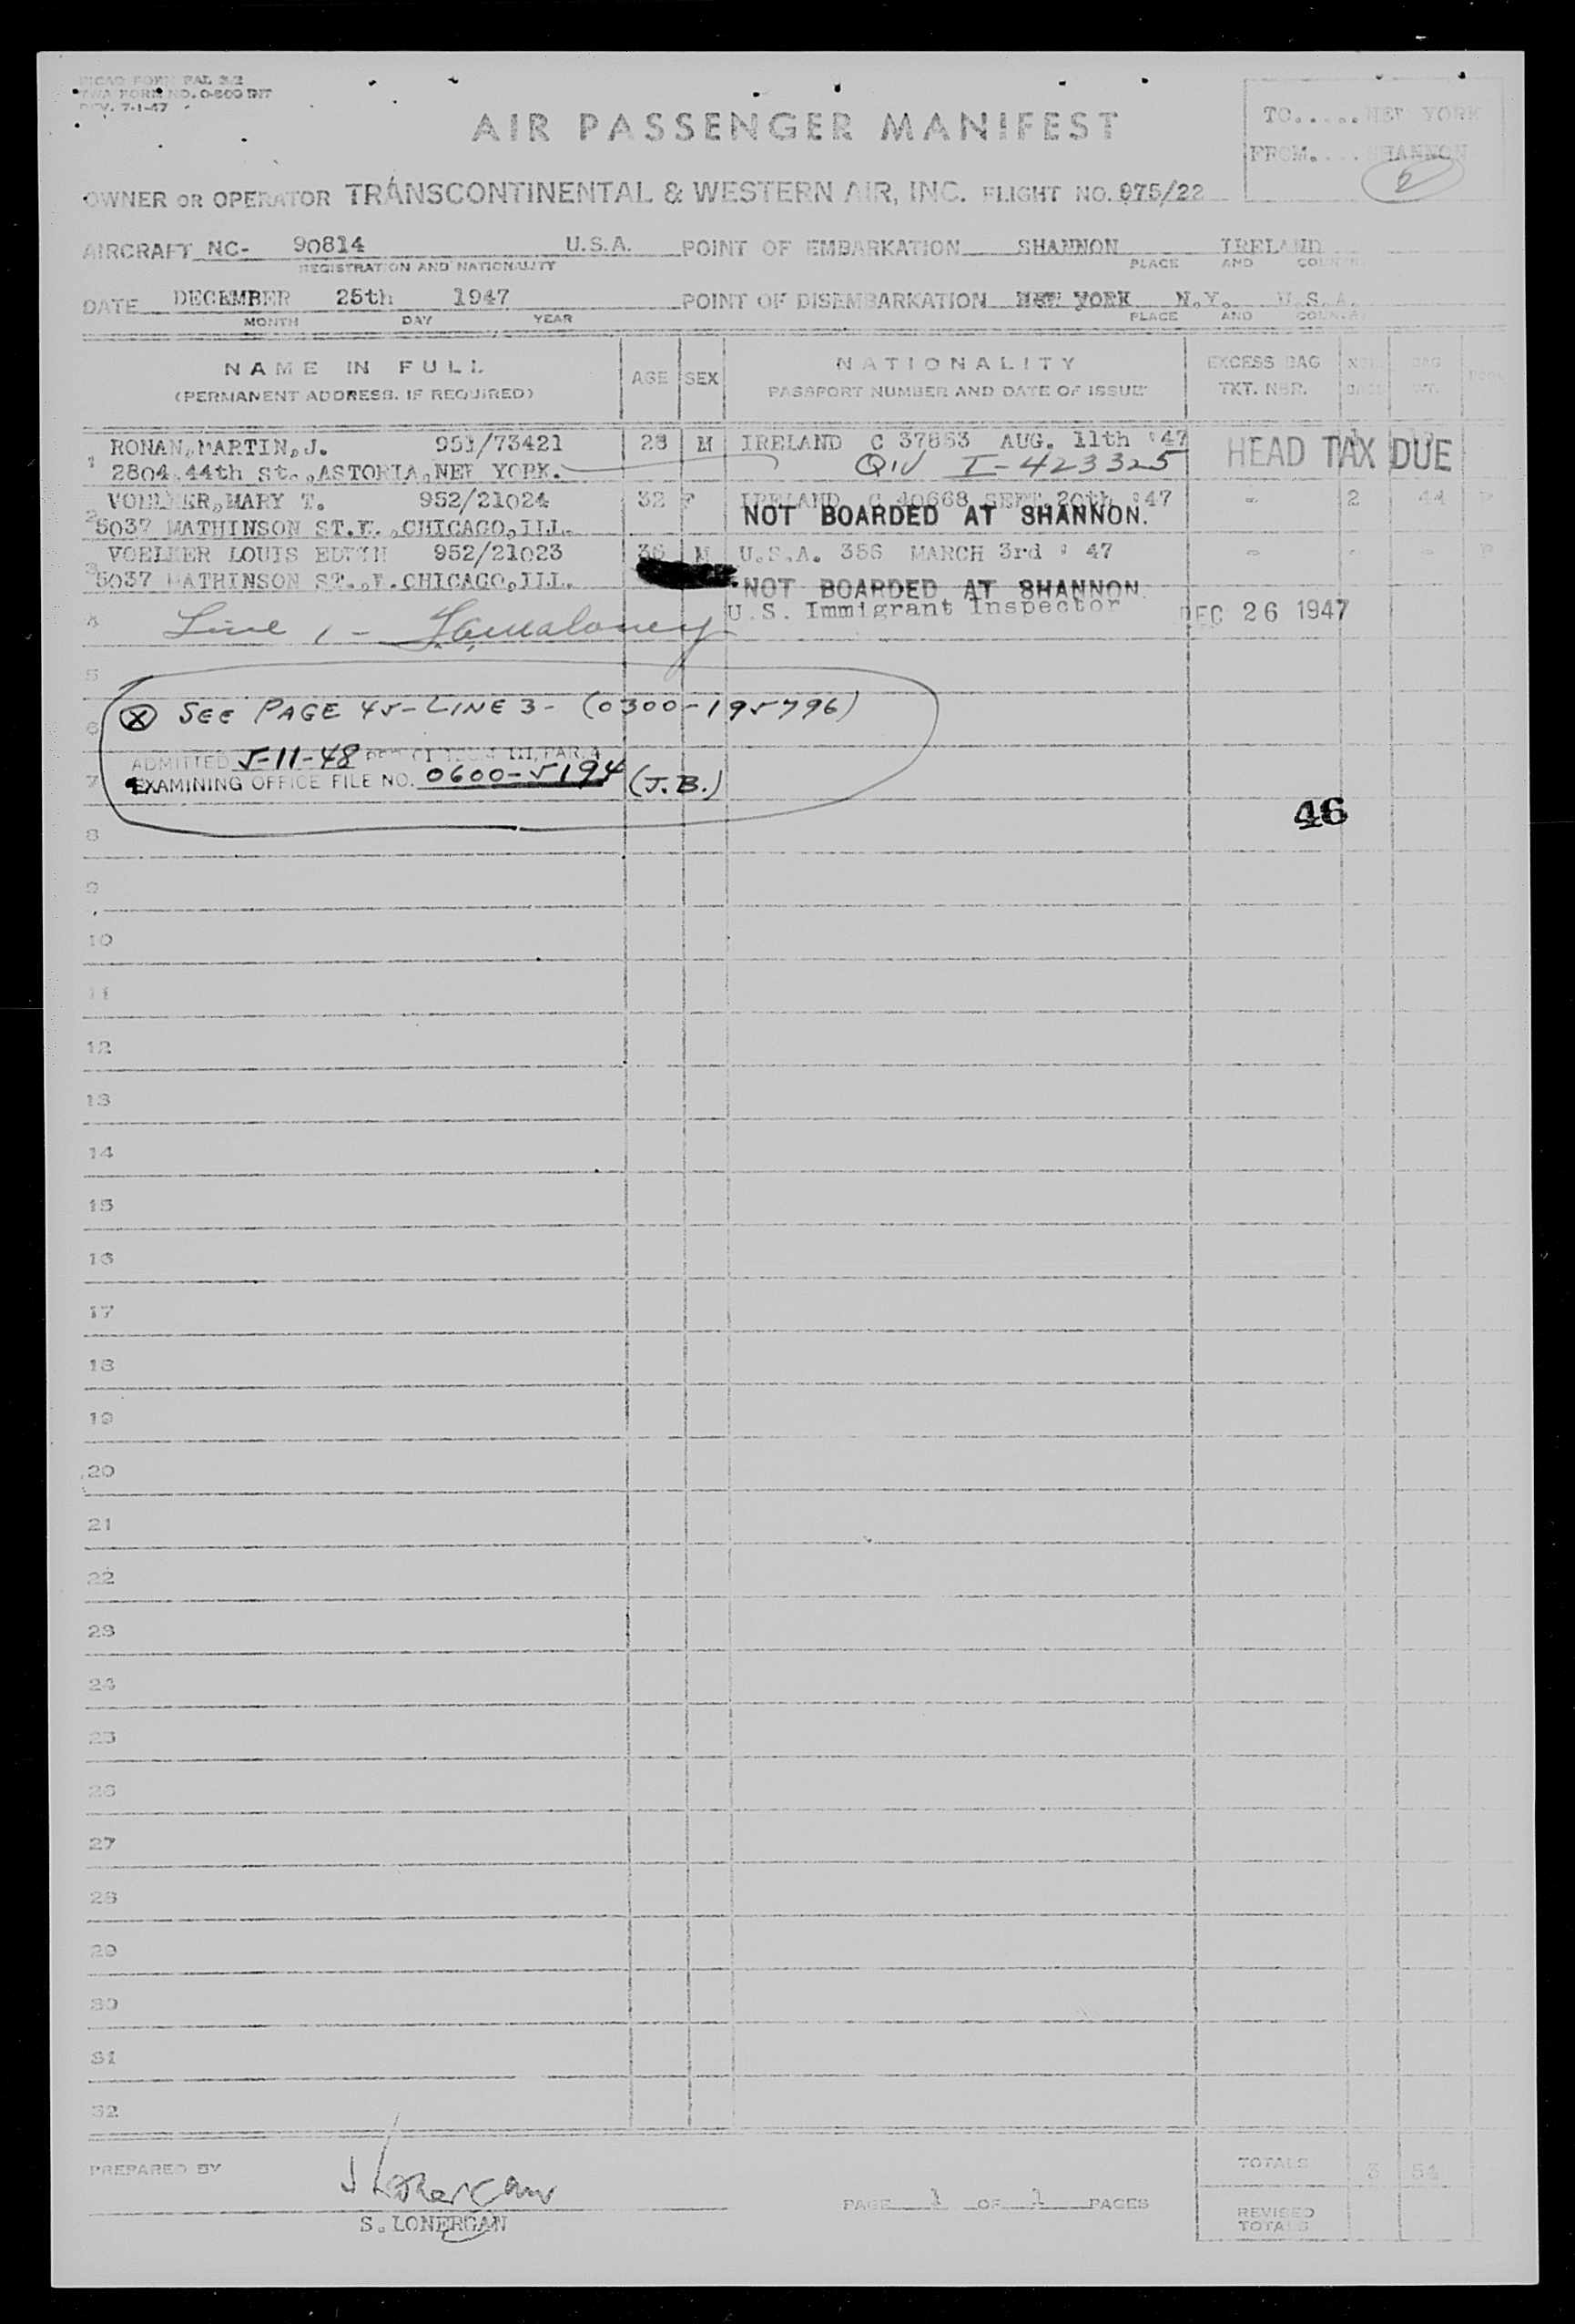 TWA FORM NO. 0-800 INT
REV. 7-1-47
AIR PASSENGER MANIFEST
TO.....NEW YORK
FROM....SHANNON
2
OWNER OR OPERATOR TRANSCONTINENTAL & WESTERN AIR, INC. FLIGHT NO. 975/22
AIRCRAFT NC- 90814 U.S.A. POINT OF EMBARKATION SHANNON IRELAND
REGISTRATION AND NATIONALITY PLACE AND COUNTRY
DATE DECEMBER 25th 1947 POINT OF DISEMBARKATION NEW YORK N.Y. U.S.A.
MONTH DAY YEAR PLACE AND COUNTRY
NAME IN FULL AGE SEX NATIONALITY EXCESS BAG BAG
(PERMANENT ADDRESS, IF REQUIRED) PASSPORT NUMBER AND DATE OF ISSUE TKT. NBR. WT.
1 RONAN,MARTIN,J. 951/73421 28 M IRELAND C 37853 AUG. 11th '47 HEAD TAX DUE
2804 44th St.,ASTORIA,NEW YORK. QIV I-423325
2 VOELKER,MARY T. 952/21024 32 F IRELAND C 40668 SEPT.20th '47 - 2 44
5037 MATHINSON ST.W.,CHICAGO,ILL. NOT BOARDED AT SHANNON.
3 VOELKER LOUIS EDWIN 952/21023 36 M U.S.A. 356 MARCH 3rd ' 47 - - -
5037 MATHINSON ST.,W.CHICAGO,ILL. NOT BOARDED AT SHANNON.
4 Line 1 - U.S. Immigrant Inspector DEC 26 1947
5
6 (X) SEE PAGE 45-LINE 3- (0300-195796)
ADMITTED 5-11-48 III, PAR.A
7 EXAMINING OFFICE FILE NO. 0600-5194 (J.B.)
46
8
9
10
11
12
13
14
15
16
17
18
19
20
21
22
23
24
25
26
27
28
29
30
31
32
PREPARED BY S Lonergan TOTALS 3 54
S.LONERGAN PAGE 1 OF 1 PAGES REVISED
TOTALS